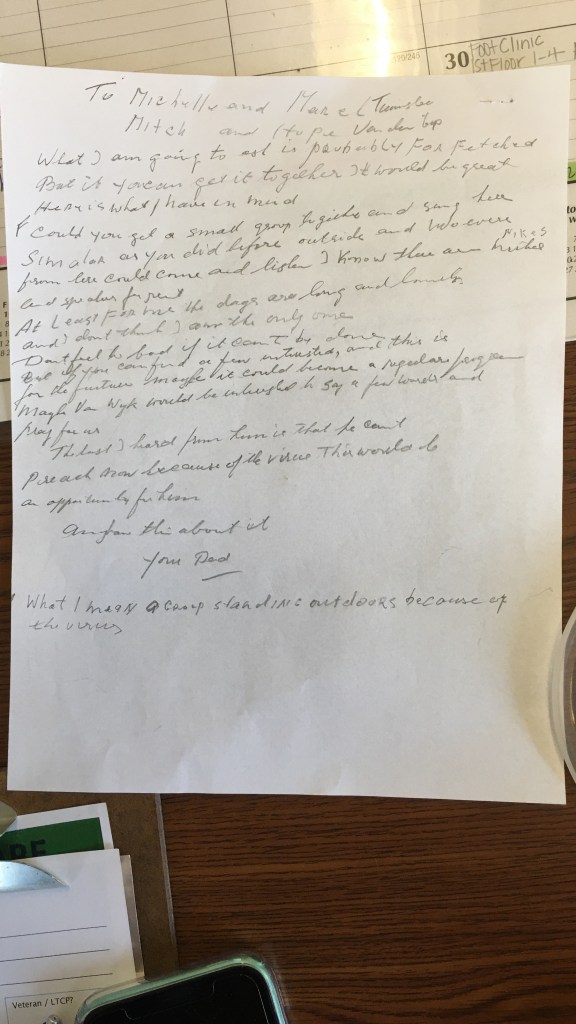 30 Foot Clinic
1st Floor 1-4
To Michelle and Marc
Mitch and Hope Vander Top
What I am going to ask is probably Far Fetched
But if you can get it together It would be great
Here is what I have in mind
Could you get a small group together and sing here
Similar as you did before outside and who ever
MIKES
from here could come and listen I know there are
and speaker for rent
At Least For me the days are long and lonely
and I don't think I am the only one
Dont feel to bad if it can't be done
But if you can find a few intrested, and this is
for the further maybe it could become a regular program
Van Wyk would be intrested to say a few words and
Pray for us
The last I hard from him is that he can't
Preach now because of the virus This would be
an opportunity for him
about it
Your Dad
What I mean a group standing outdoors because of
the virus
Veteran / LTCP?